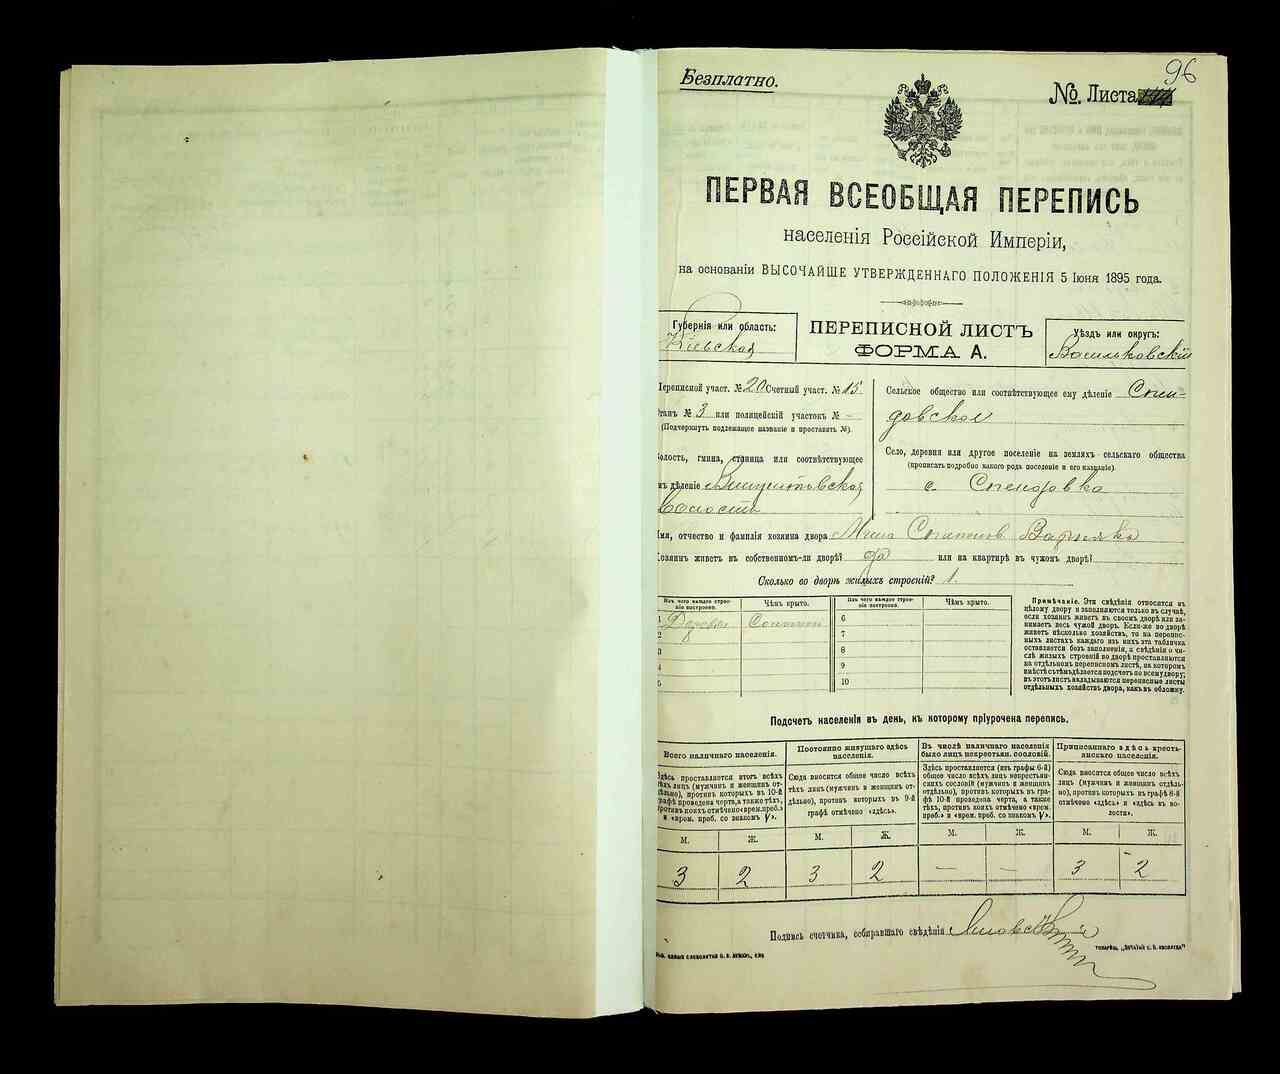 Безплатно.
96
№. Листа
ПЕРВАЯ ВСЕОБЩАЯ ПЕРЕПИСЬ
населенія Россійской Имперіи,
на основаніи ВЫСОЧАЙШЕ УТВЕРЖДЕННАГО ПОЛОЖЕНІЯ 5 Іюня 1895 года.
Губернія или область:
Кіевская
ПЕРЕПИСНОЙ ЛИСТЪ
ФОРМА А.
Уѣздъ или округъ:
Васильковскій
Переписной участ. № 20 Счетный участ. № 15
Станъ № 3 или полицейскій участокъ № -
(Подчеркнуть подлежащее названіе и проставить №).
Волость, гмина, станица или соотвѣтствующее
имъ дѣленіе
волости
Сельское общество или соотвѣтствующее ему дѣленіе
Село, деревня или другое поселеніе на земляхъ сельскаго общества
(прописать подробно какого рода поселеніе и его названіе).
с.
Имя, отчество и фамилія хозяина двора
Хозяинъ живетъ въ собственномъ-ли дворѣ? да или на квартирѣ въ чужомъ дворѣ?
Сколько во дворѣ жилыхъ строеній? 1.
Изъ чего каждое строеніе построено.
Чѣмъ крыто.
Изъ чего каждое строеніе построено.
Чѣмъ крыто.
1
2
3
4
5
6
7
8
9
10
Примѣчаніе. Эти свѣдѣнія относятся къ
цѣлому двору и заполняются только въ случаѣ,
если хозяинъ живетъ въ своемъ дворѣ или занимаетъ
весь чужой дворъ. Если-же во дворѣ
живетъ нѣсколько хозяйствъ, то на переписныхъ
листахъ каждаго изъ нихъ эта табличка
оставляется безъ заполненія, а свѣдѣнія о числѣ
жилыхъ строеній во дворѣ проставляются
на отдѣльномъ переписномъ листѣ, на которомъ
вмѣстѣ съ тѣмъ дѣлается подсчетъ по всему двору;
въ этотъ листъ вкладываются переписные листы
отдѣльныхъ хозяйствъ двора, какъ въ обложку.
Подсчетъ населенія въ день, къ которому пріурочена перепись.
Всего наличнаго населенія.
Постоянно живущаго здѣсь населенія.
Въ числѣ наличнаго населенія было лицъ некрестьян. сословій.
Приписаннаго здѣсь крестьянскаго населенія.
Здѣсь проставляется итогъ всѣхъ
тѣхъ лицъ (мужчинъ и женщинъ отдѣльно),
противъ которыхъ въ 10-й
графѣ проведена черта, а также тѣхъ,
противъ коихъ отмѣчено «врем. преб.»
и «врем. преб. со знакомъ V».
Сюда вносится общее число всѣхъ
тѣхъ лицъ (мужчинъ и женщинъ отдѣльно),
противъ которыхъ въ 9-й
графѣ отмѣчено «здѣсь».
Здѣсь проставляется (изъ графы 6-й)
общее число всѣхъ лицъ некрестьянскихъ
сословій (мужчинъ и женщинъ
отдѣльно), противъ которыхъ въ графѣ
10-й проведена черта, а также
тѣхъ, противъ коихъ отмѣчено «врем.
преб.» и «врем. преб. со знакомъ V».
Сюда вносится общее число всѣхъ
лицъ (мужчинъ и женщинъ отдѣльно),
противъ которыхъ въ графѣ 8-й
отмѣчено «здѣсь» и «здѣсь въ волости».
М. Ж. М. Ж. М. Ж. М. Ж.
3 2 3 2 — — 3 2
Подпись счетчика, собиравшаго свѣдѣнія